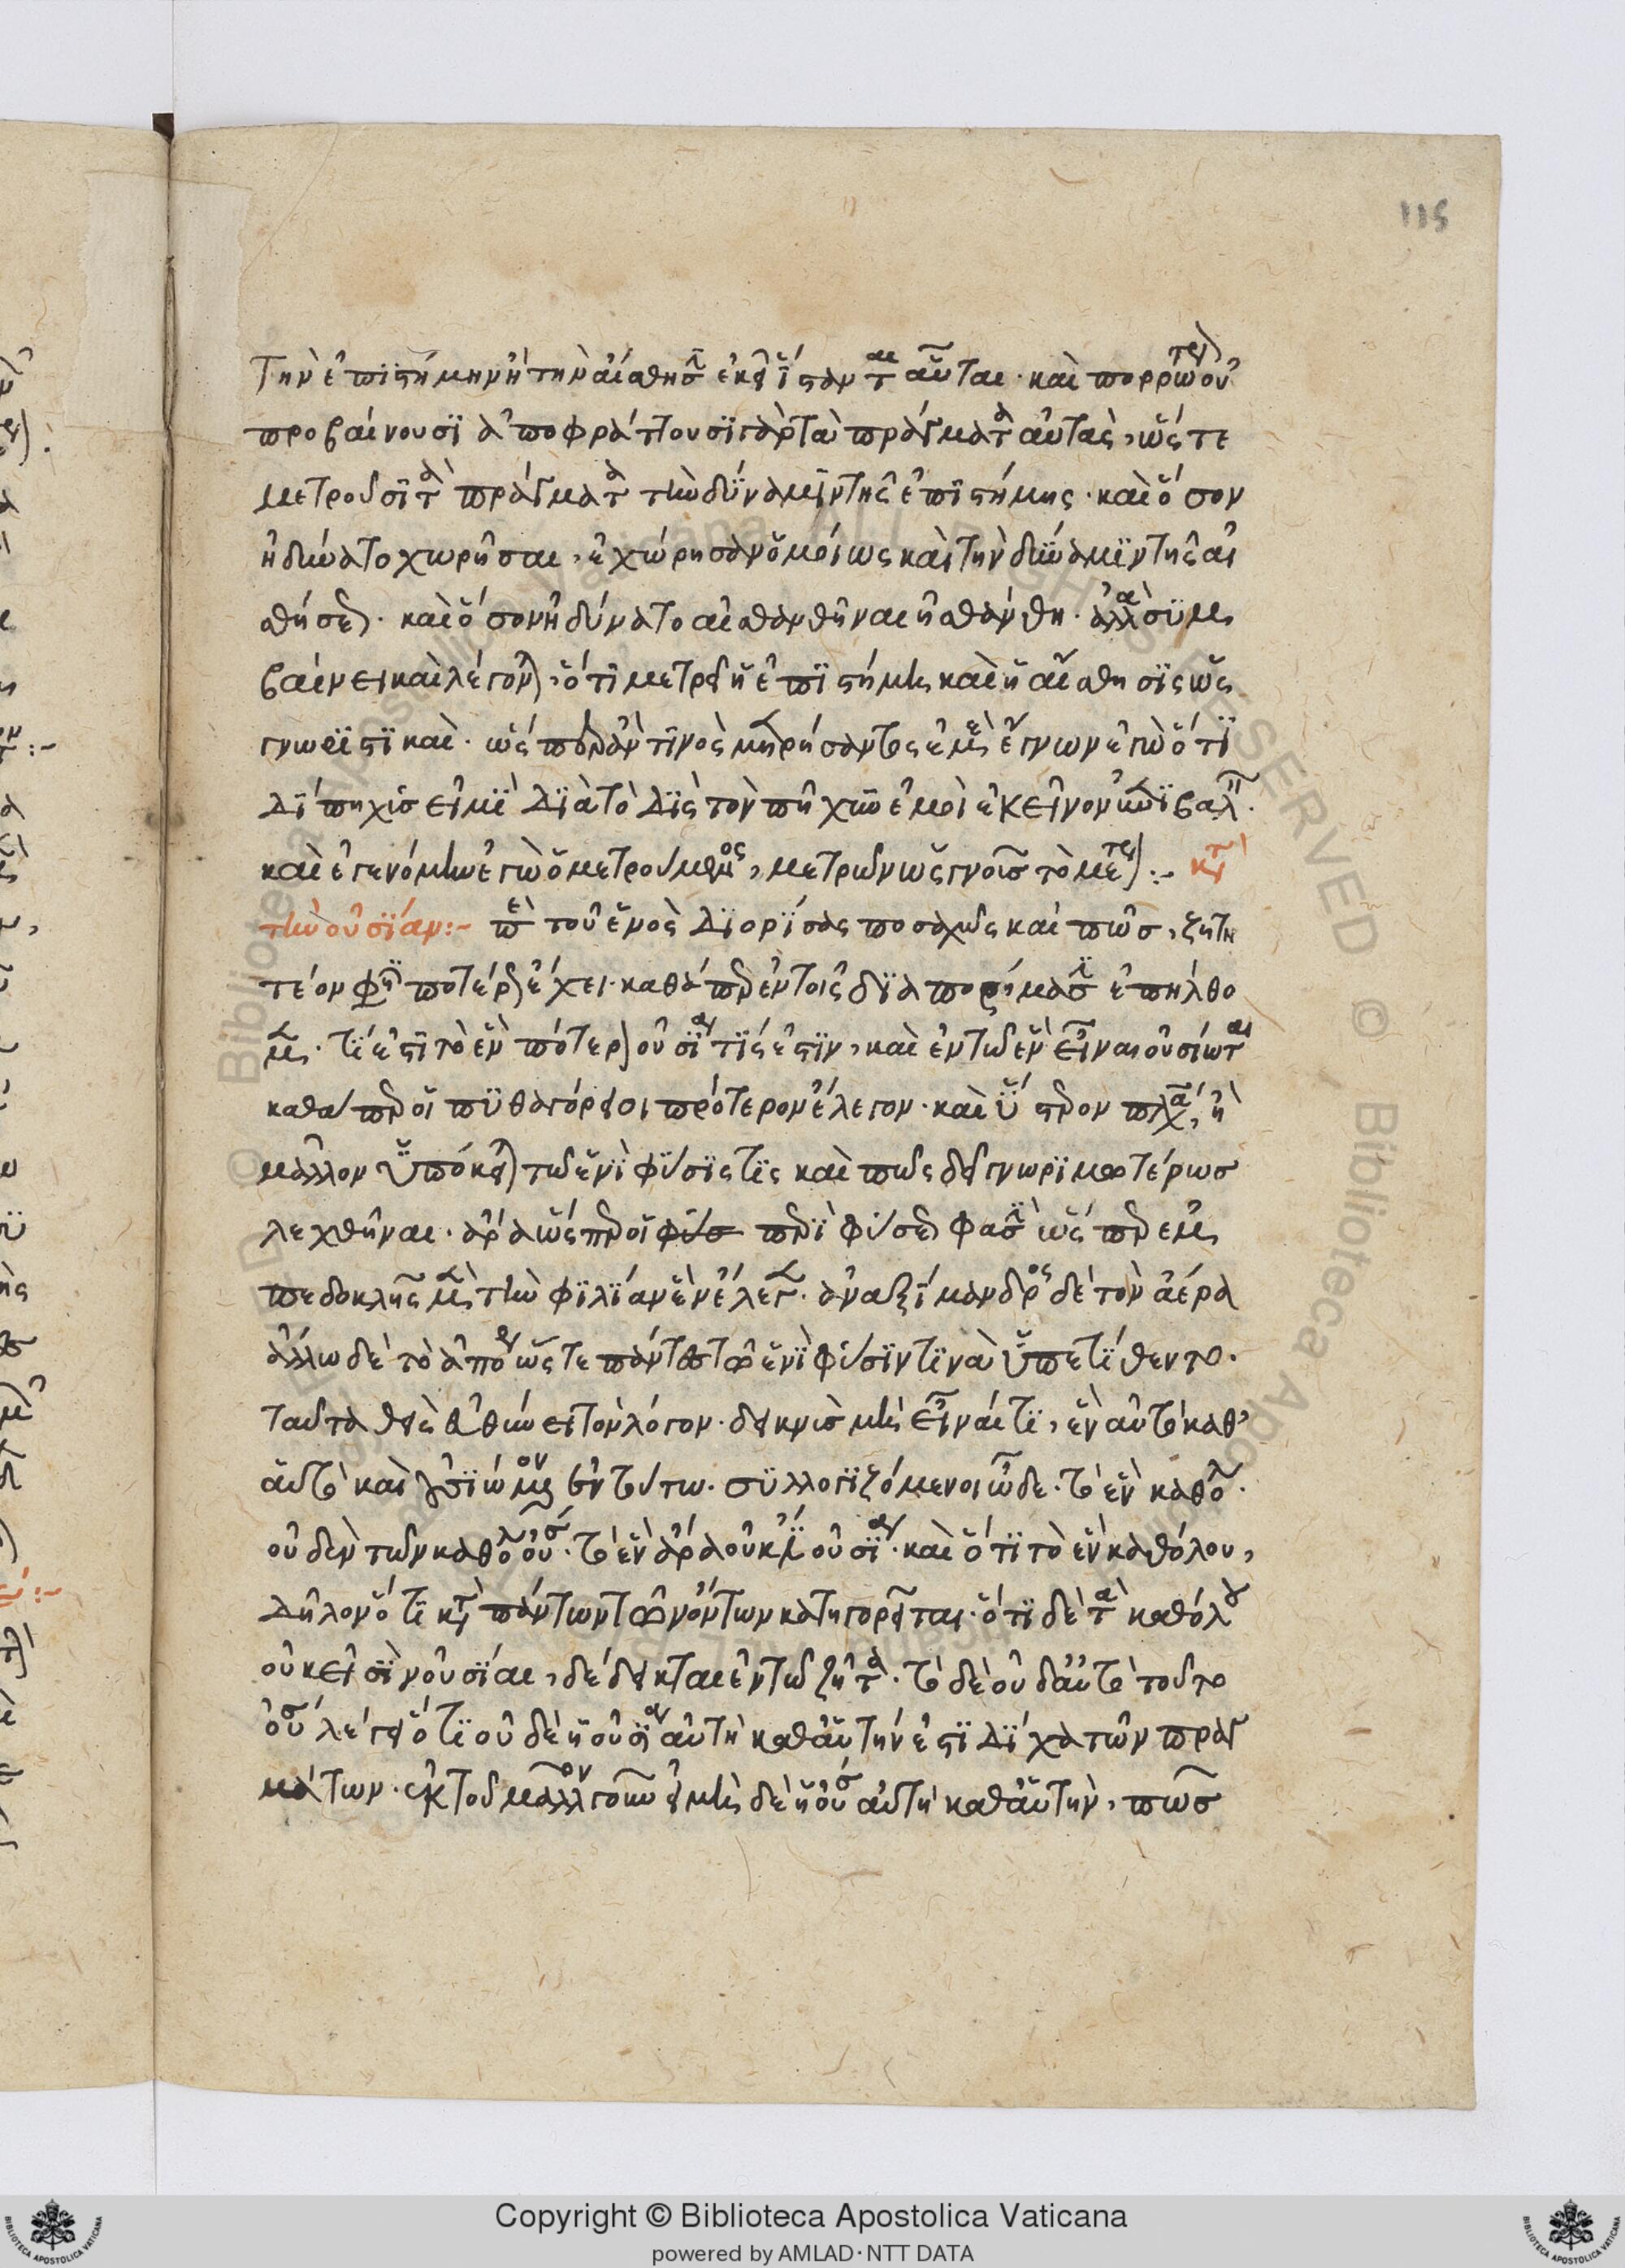 115
τὴν ἐπιστήμην ἢ τὴν αἴσθησιν ἐκεῖ ἵστανται αὗται · καὶ πορρωτέρω οὐ
προβαίνουσιν ἀποφράττουσι γὰρ τὰ πράγματα αὐτὰς, ὥστε
μετροῦσι τὰ πράγματα τὴν δύναμιν τῆς ἐπιστήμης · καὶ ὅσον
ἠδύνατο χωρῆσαι, ἐχώρησαν ὁμοίως καὶ τὴν δύναμιν τῆς αἰ
σθήσεως · καὶ ὅσον ἠδύνατο αἰσθανθῆναι ἠσθάνθη · ἀλλὰ συμ
βαίνει καὶ λέγονται, ὅτι μετρεῖ ἡ ἐπιστήμη καὶ ἡ αἴσθησις ὡς
γνωριστικαὶ · ὥσπερ ἄν τινος μετρήσαντος ἐμὲ ἔγνων ἐγὼ ὅτι
δίπηχύς εἰμι διὰ τὸ δὶς τὸν πῆχυν ἐμοὶ ἐκεῖνον ἐπιβαλεῖν ·
καὶ ἐγενόμην ἐγὼ ὁ μετρούμενος, μετρῶν ὡς γνοὺς τὸ μέτρον :- κατὰ
τὴν οὐσίαν :- περὶ τοῦ ἑνὸς διορίσας ποσαχῶς καὶ πῶς, ζητη
τέον φησὶ ποτέρως ἔχει · καθάπερ ἐν τοῖς διαπορήμασιν ἐπήλθο
μεν · τί ἐστι τὸ ἓν πότερον οὐσία τίς ἐστιν, καὶ ἐν τῶ ἓν εἶναι οὐσίωται
καθάπερ οἱ πυθαγόρειοι πρότερον ἔλεγον · καὶ ὕστερον πλάτων, ἢ
μᾶλλον ὑπόκειται τῶ ἑνὶ φύσις τὶς καὶ πῶς δεῖ γνωριμωτέρως
λεχθῆναι · ἆρα ὥσπερ οἱ περὶ φύσεως φασὶν ὥσπερ ἐμ
πεδοκλῆς μὲν τὴν φιλίαν ἓν ἔλεγεν · ἀναξίμανδρος δὲ τὸν ἀέρα
ἄλλω δὲ τὸ ἄπειρον ὥστε πάντες τῶ ἑνὶ φύσιν τινὰ ὑπετίθεντο ·
ταῦτα θεὶς εὐθύνει τὸν λόγον · δεικνὺς μὴ εἶναί τι, ἓν αὐτὸ καθ'
αὑτὸ καὶ συλλογιζόμενοι ὧδε · τὸ ἓν καθόλου ·
οὐδὲν τῶν καθόλου οὐσία · τὸ ἓν ἄρα οὐκ ἔστιν οὐσία · καὶ ὅτι τὸ ἓν καθόλου,
δῆλον ὅτι κατὰ πάντων τῶν ὄντων κατηγορεῖται · ὅτι δὲ τὰ καθόλου
οὐκ εἰσὶν οὐσίαι, δέδεικται ἐν τῶ ζῆτα · τὸ δὲ οὐδ' αὐτὸ τοῦτο
οὐσία λέγει ὅτι οὐδὲ ἡ οὐσία αὐτὴ καθ' αὑτήν ἐστι δίχα τῶν πραγ
μάτων · ἐκ τοῦ μᾶλλον γοῦν εἰ μὴ δὲ ἡ οὐσία αὐτὴ καθ' αὑτὴν, πῶς
Copyright © Biblioteca Apostolica Vaticana
powered by AMLAD·NTT DATA